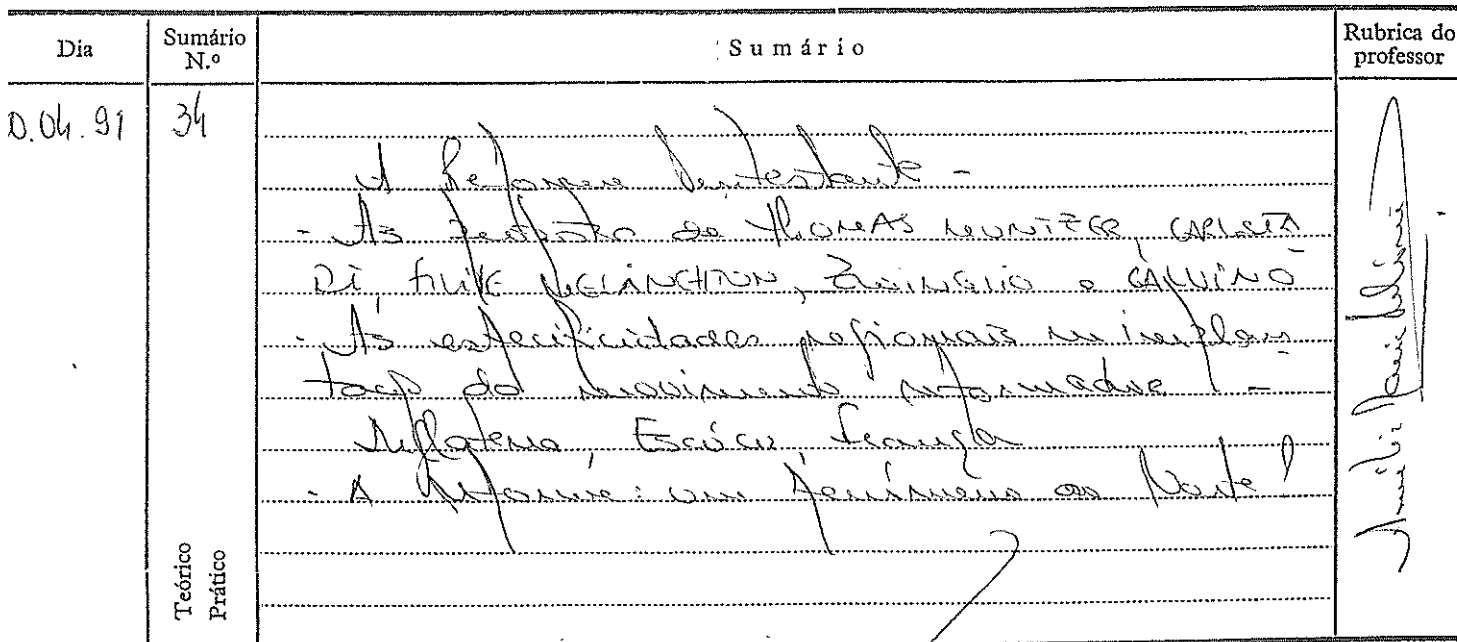 Dia
Sumário N.º
Sumário
Rubrica do professor
0.04.91
34
A Reforma Protestante -
- As de Thomas MUNTZER, CARLSTA
DT, FILIPE MELANCHTON, Zwinglio e CALVINO
- As especificidades regionais na implan
tação do movimento reformador -
Inglaterra, Escócia, França
- A Reforma: um fenómeno do Norte?
Teórico
Prático